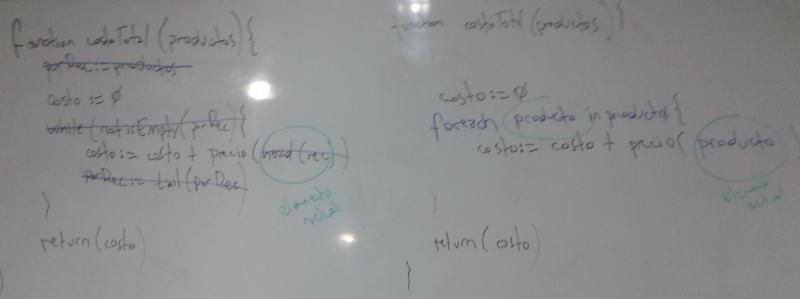 function costoTotal (productos) {
porRec := productos
costo := 0
while (not isEmpty (porRec) {
costo := costo + precio (head (rec))
porRec := tail (porRec)
elemento actual
}
return (costo)
}
function costoTotal (productos) {
costo := 0
foreach producto in productos {
costo := costo + precio ( producto )
elemento actual
}
return ( costo )
}